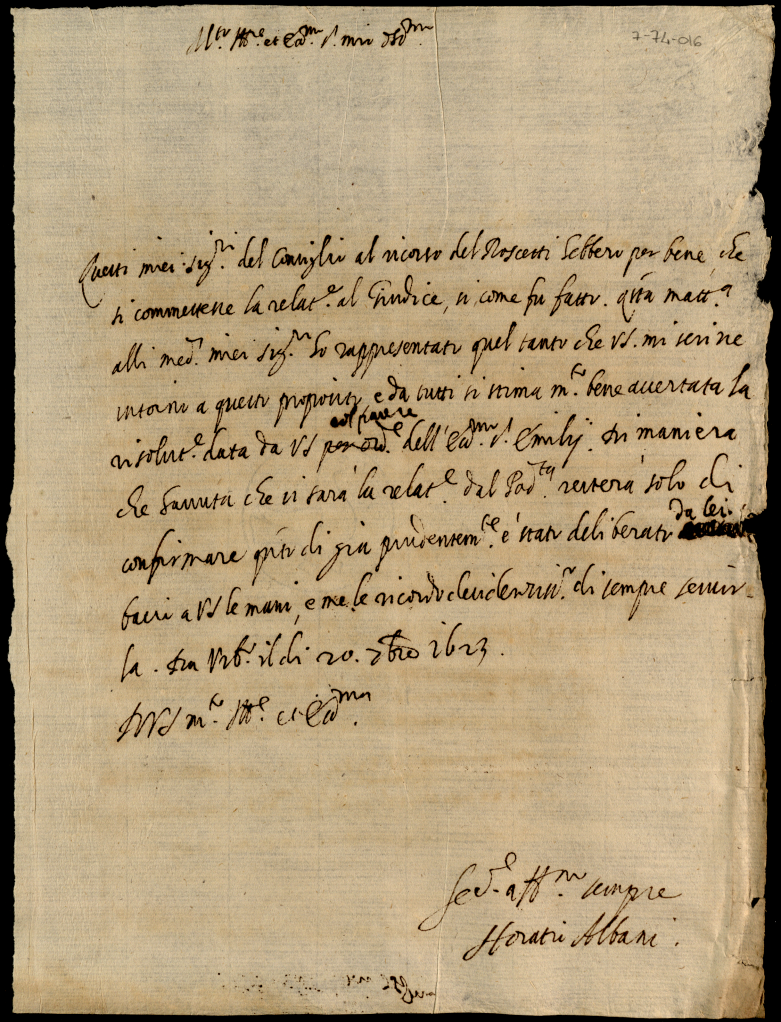 Mto Ill.re et Ecc.mo S.r mio oss.mo
7-74-016
Questi miei sig.ri del Consiglio al ricorso del Roscetti hebbero per bene, che
si commettesse la relat.e al Giudice, si come fu fatto. q.sta matt.a
alli med.mi miei sig.ri ho rappresentato quel tanto che VS. mi scrive
intorno a questo proposito, e da tutti si stima m.to bene avertata la
risolut.e data da VS per ord.e col parere dell'Ecc.mo S.r Emilij. Di maniera
che havuta che si sarà la relat.e dal Pod.tà resterà solo di
confirmare q.to di già prudentem.te è stato deliberato da lei.
bacio a VS le mani, e me le ricordo desideros.mo di sempre servir-
la. Da Urb.o il dì 20. 7bre 1623.
Di VS m.to Ill.e et Ecc.ma
Se.re aff.mo sempre
Horatio Albani.